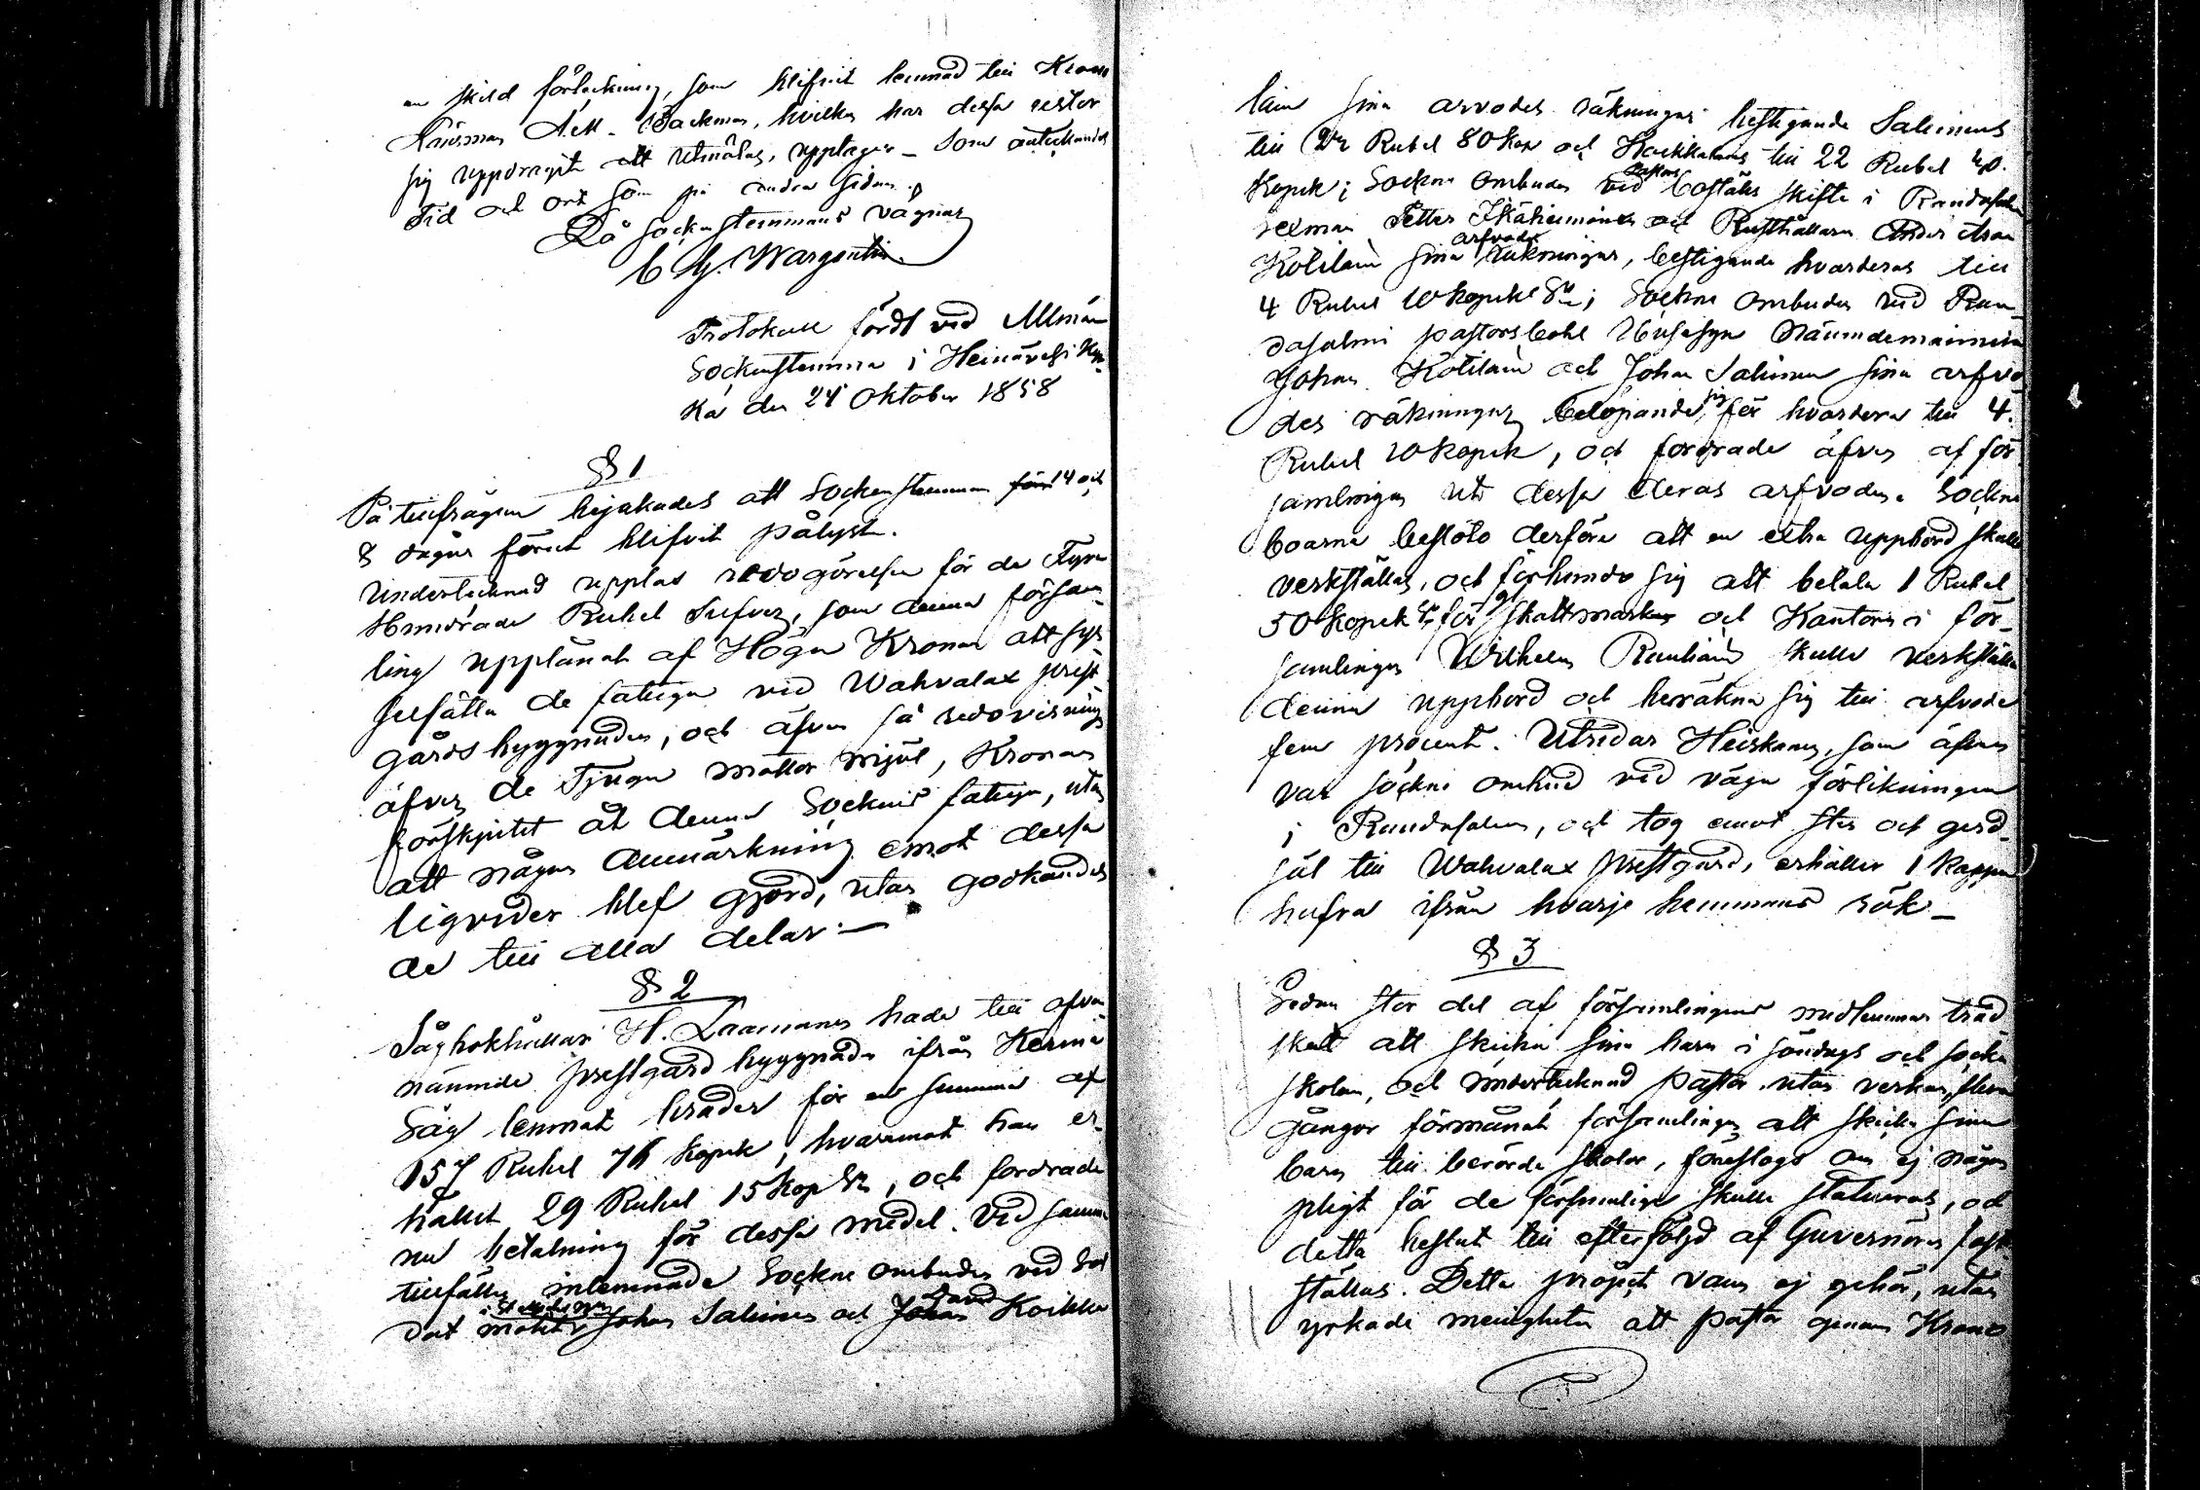 en skild förteckning, som blifvit lemnad till Krono
Länsman A. M. Backman, hvilken har dessa rester
sig uppdragit att utmätas, upptagas – Som antecknades
Tid och ort som på andra sidan.
På Sockenstemmans vägnar
C G. Wargentin.
Protokoll fördt vid Allmän
Sockenstemma i Heinävesi Kyr-
ka den 24 Oktober 1858
§ 1
På tillfrågan bejakades att Sockenstemman 14 och
8 dagar förut blifvit pålyst.
Undertecknad upplas redogörelsen för de Fyra
Hundrade Rubel Silfver, som denna försam-
ling upplånat af Höga Kronan att sys
selsätta de fattiga vid Wahvalax prest
gårds byggnaden, och äfven så redovisning
äfver de Tjugu mattor mjöl, Kronan
förskjutit åt denna Sockens fattiga, utan
att någon anmärkning emot dessa
liqvider blef gjord, utan godkändes
de till alla delar. –
§ 2
Såg bokhållar H. Laamanen hade till ofvan
nämnde prestgård byggnade ifrån Kerma
Såg lemnat bräder för en summa af
157 Rubel 76 kopek, hvaremot han er-
hållit 29 Rubel 15 Kop Sr, och fordrade
nu betalning för dessa medel. Vid samma
tillfälle inlemnade Sockne ombuden vid Sol
dat Johan Salinen och David Koikka
lain sina arvodes räkningar bestigande Salinens
till Rubel 80 Kop och Koikkalains till 22 Rubel 40.
Kopek; Sockne Ombuden vid Boställs skifte i Randasalmi
Petter Ikäheimonen och Rusthållaren Anders
Kolilain sina arfvodes räkningar, bestigande hvarderas till
4 Rubel 10 kopek Sr; Sockne Ombuden vid Ran-
dasalmi pastorsbohl Husesyn Nämndemännen
Johan Kolilain och Johan Salinen sina arfvo
des räkningar, belöpande sig för hvardera till 4.
Rubel 10 kopek, och fordrade äfven af för-
samlingen ut dessa deras arfvoden. Sockne
boarne beslöto derföre att en extra uppbörd skall
verkställas, och förbundo sig att betala 1 Rubel
50 Kopek Sr för skattmarken och Kantorn i för-
samlingen Wilhelm Rauhiain skulle verkställa
denna uppbörd och beräkna sig till arfvode
fem procent. Utridar Heiskanen, som äfven
var sockne ombud vid väga förlikningen
i Randasalmi, och tog emot sten och gerd-
sål till Wahvalax prestgård, erhåller 1 kappa
hafra ifrån hvarje hemmans rök –
§ 3
Sedan stor del af församlingens medlemmar tred
skat att skicka sina barn i söndags och socken
skolan, och undertecknad pastor utan verkan, flera
gånger förmanat församlingen att skicka sina
barn till berörde skolor, föreslogs om ej någon
pligt för de försumliga skulle statueras, och
detta beslut till efterföljd af Guvernören fast-
ställas. Detta projegt vann ej gehör, utan
yrkade menigheten att pastor genom Krono